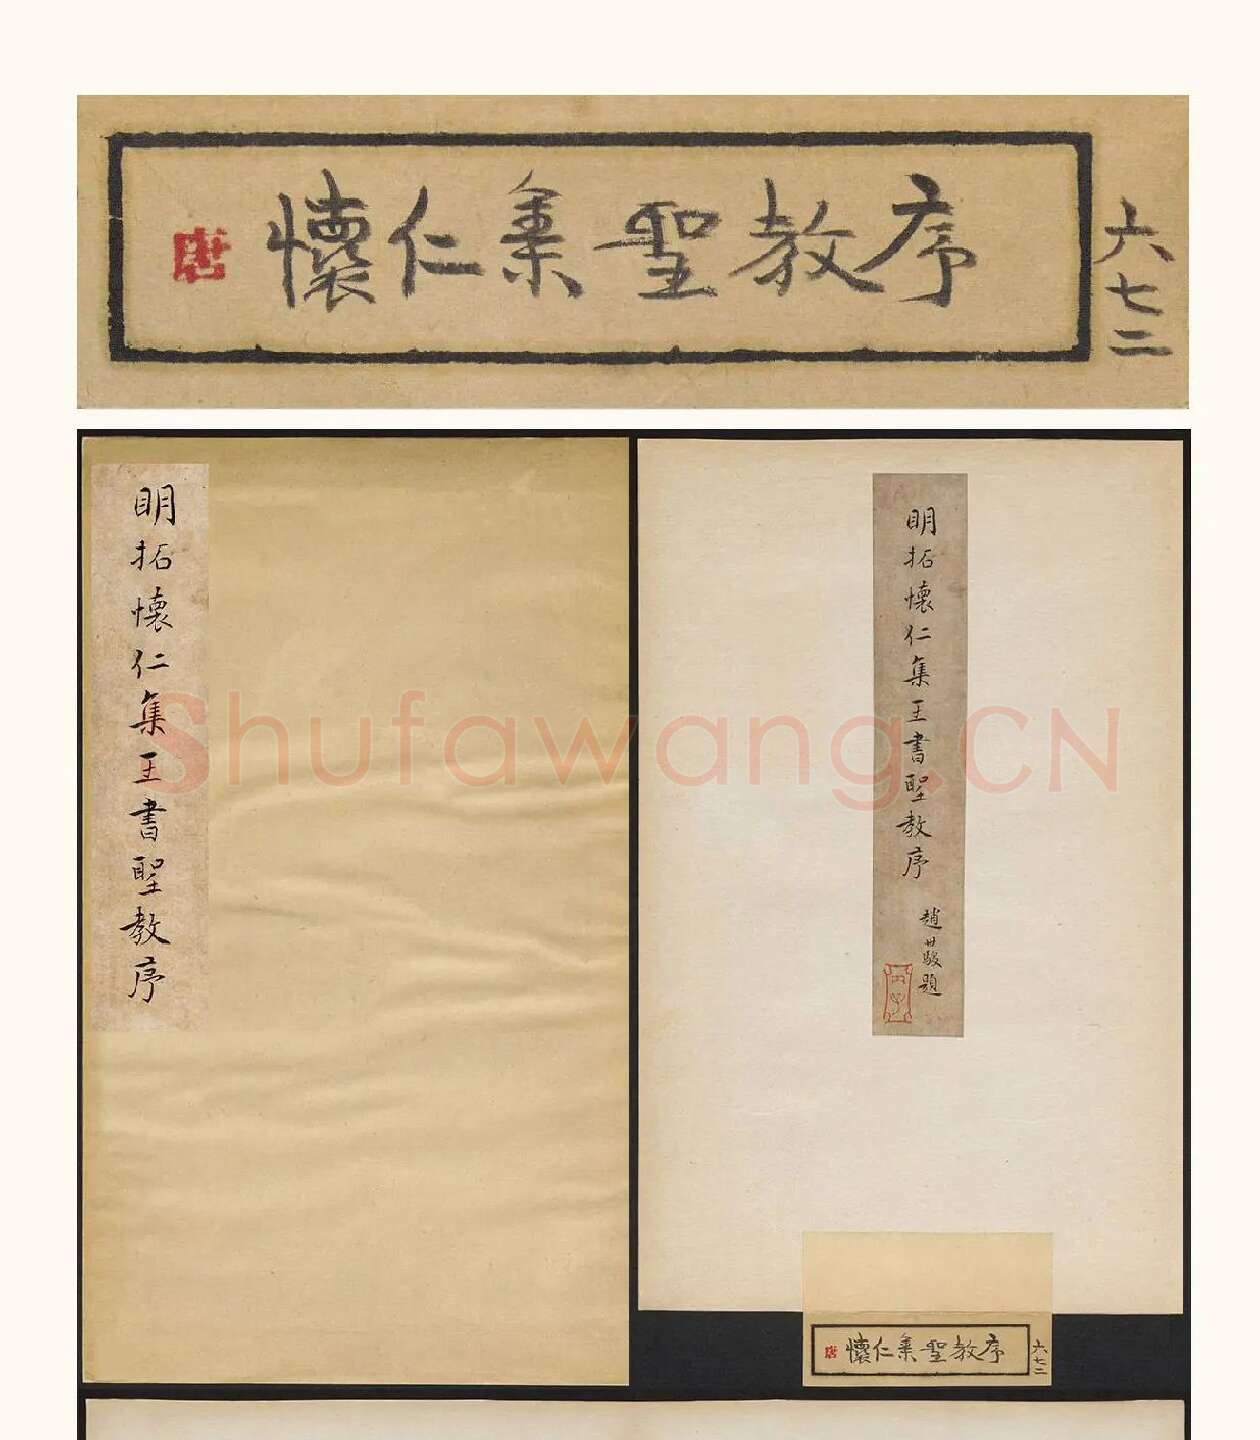 唐
懷仁集聖教序
六七二
明拓懷仁集王書聖教序
明拓懷仁集王書聖教序
趙世駿題
Shufawang.CN
唐
懷仁集聖教序
六七二